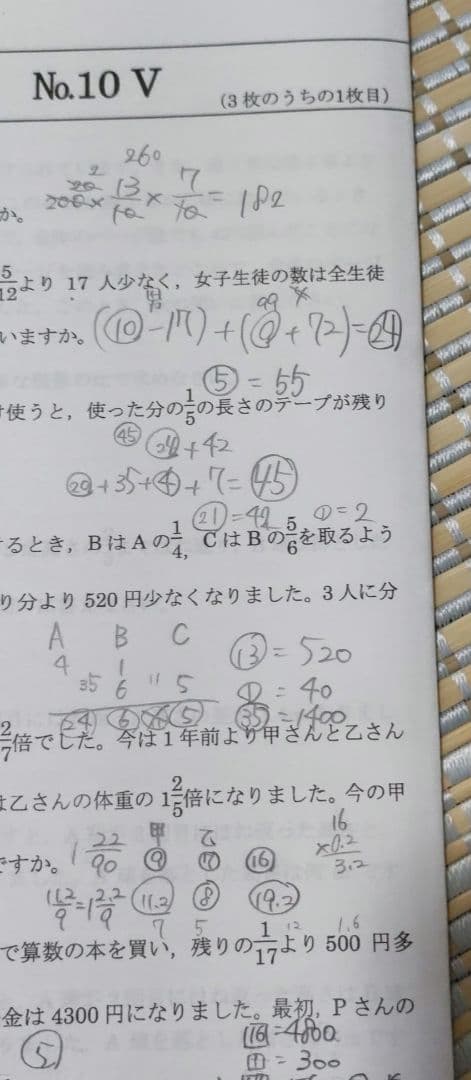 No.10 V
(3枚のうちの1枚目)
260
13/10 × 7/10 = 182
か。
5/12より 17 人少なく，女子生徒の数は全生徒
いますか。
⑤ = 55
使うと，使った分の1/5の長さのテープが残り
㊺ ㉔ + 42
+ 7 = ㊺
㉑ = 42 ① = 2
るとき，BはAの1/4，CはBの5/6を取るよう
り分より 520 円少なくなりました。3人に分
A B C
⑬ = 520
4 1
35 6 11 5
① = 40
㉟ = 1400
2/7倍でした。今は1年前より甲さんと乙さん
は乙さんの体重の 1 2/5倍になりました。今の甲
ですか。
1 22/90
甲 乙
⑨ ⑯
16
×0.2
3.2
11.2/9 = 1 2.2/9
(11.2) ⑧ (19.2)
7 5 12 1.6
で算数の本を買い，残りの1/17より 500 円多
金は 4300 円になりました。最初，Pさんの
⑤
= 4800
= 300